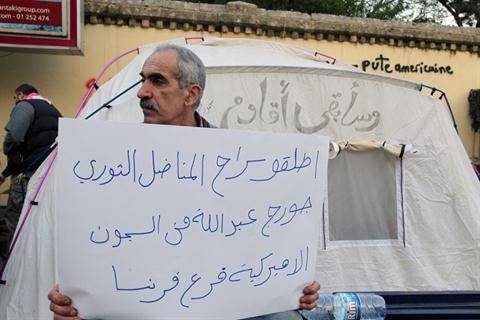 antakigroup.com
- 01 252 474
pute americaine
وسأبقى أقاوم
اطلقو سراح المناضل الثوري
جورج عبدالله من السجون
الاميركية فرع فرنسا